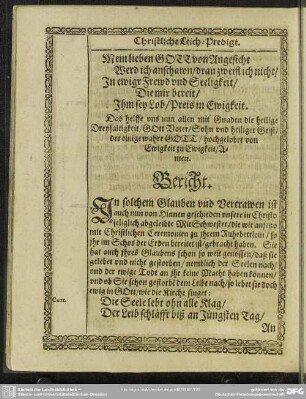 Christliche Leich-Predigt.
Mein lieben GOTT von Angesicht
Werd ich anschawen/dran zweifl ich nicht/
In ewigr Frewd vnd Seeligkeit/
Die mir bereit/
Ihm sey Lob/Preis in Ewigkeit.
Das helffe vns nun allen mit Gnaden die heilige
Dreyfaltigkeit/GOtt Vater/Sohn vnd heiliger Geist/
der einige wahre GOTT/hochgelobet von
Ewigkeit zu Ewigkeit/A-
men.
Bericht.
In solchem Glauben vnd Vertrawen ist
auch nun von Hinnen geschieden vnsere in Christo
seliglich abgeleibte MitSchwester/die wir anjtzo
mit Christlichen Ceremonien zu jhrem Ruhebettlein/so
jhr im Schos der Erden bereitet ist/gebracht haben. Sie
hat auch jhres Glaubens schon so weit genossen/daß sie
gelebet vnd nicht gestorben/nemblich der Seelen nach/
vnd der ewige Todt an jhr keine Macht haben können/
vnd ob Sie schon gestorbē dem Leibe nach/so lebet sie doch
ewig in GOtt/wie die Kirche singet:
Cant.
Die Seele lebt ohn alle Klag/
Der Leib schläfft biß an Jüngsten Tag/
An